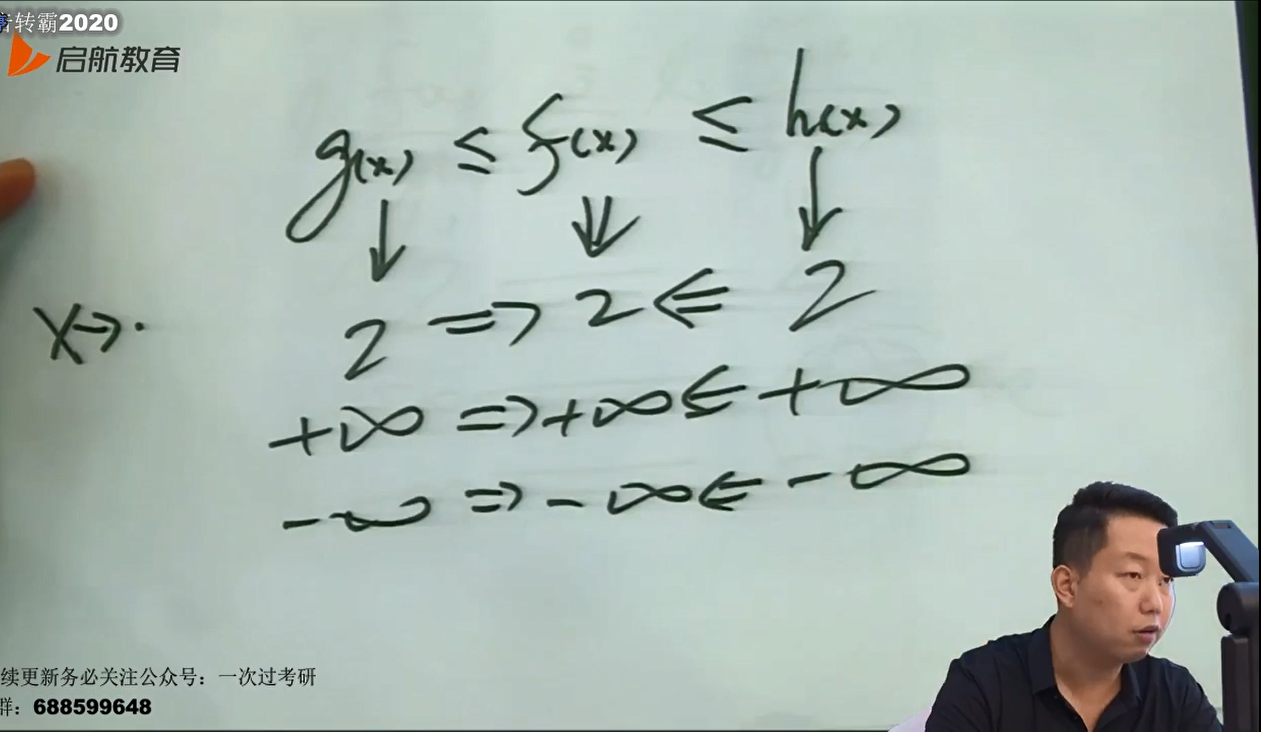 转霸2020
启航教育
g(x) ≤ f(x) ≤ h(x)
↓ ⇓ ↓
x→· 2 ⇒ 2 ⇐ 2
+∞ ⇒ +∞ ⇐ +∞
-∞ ⇒ -∞ ⇐ -∞
续更新务必关注公众号：一次过考研
群：688599648